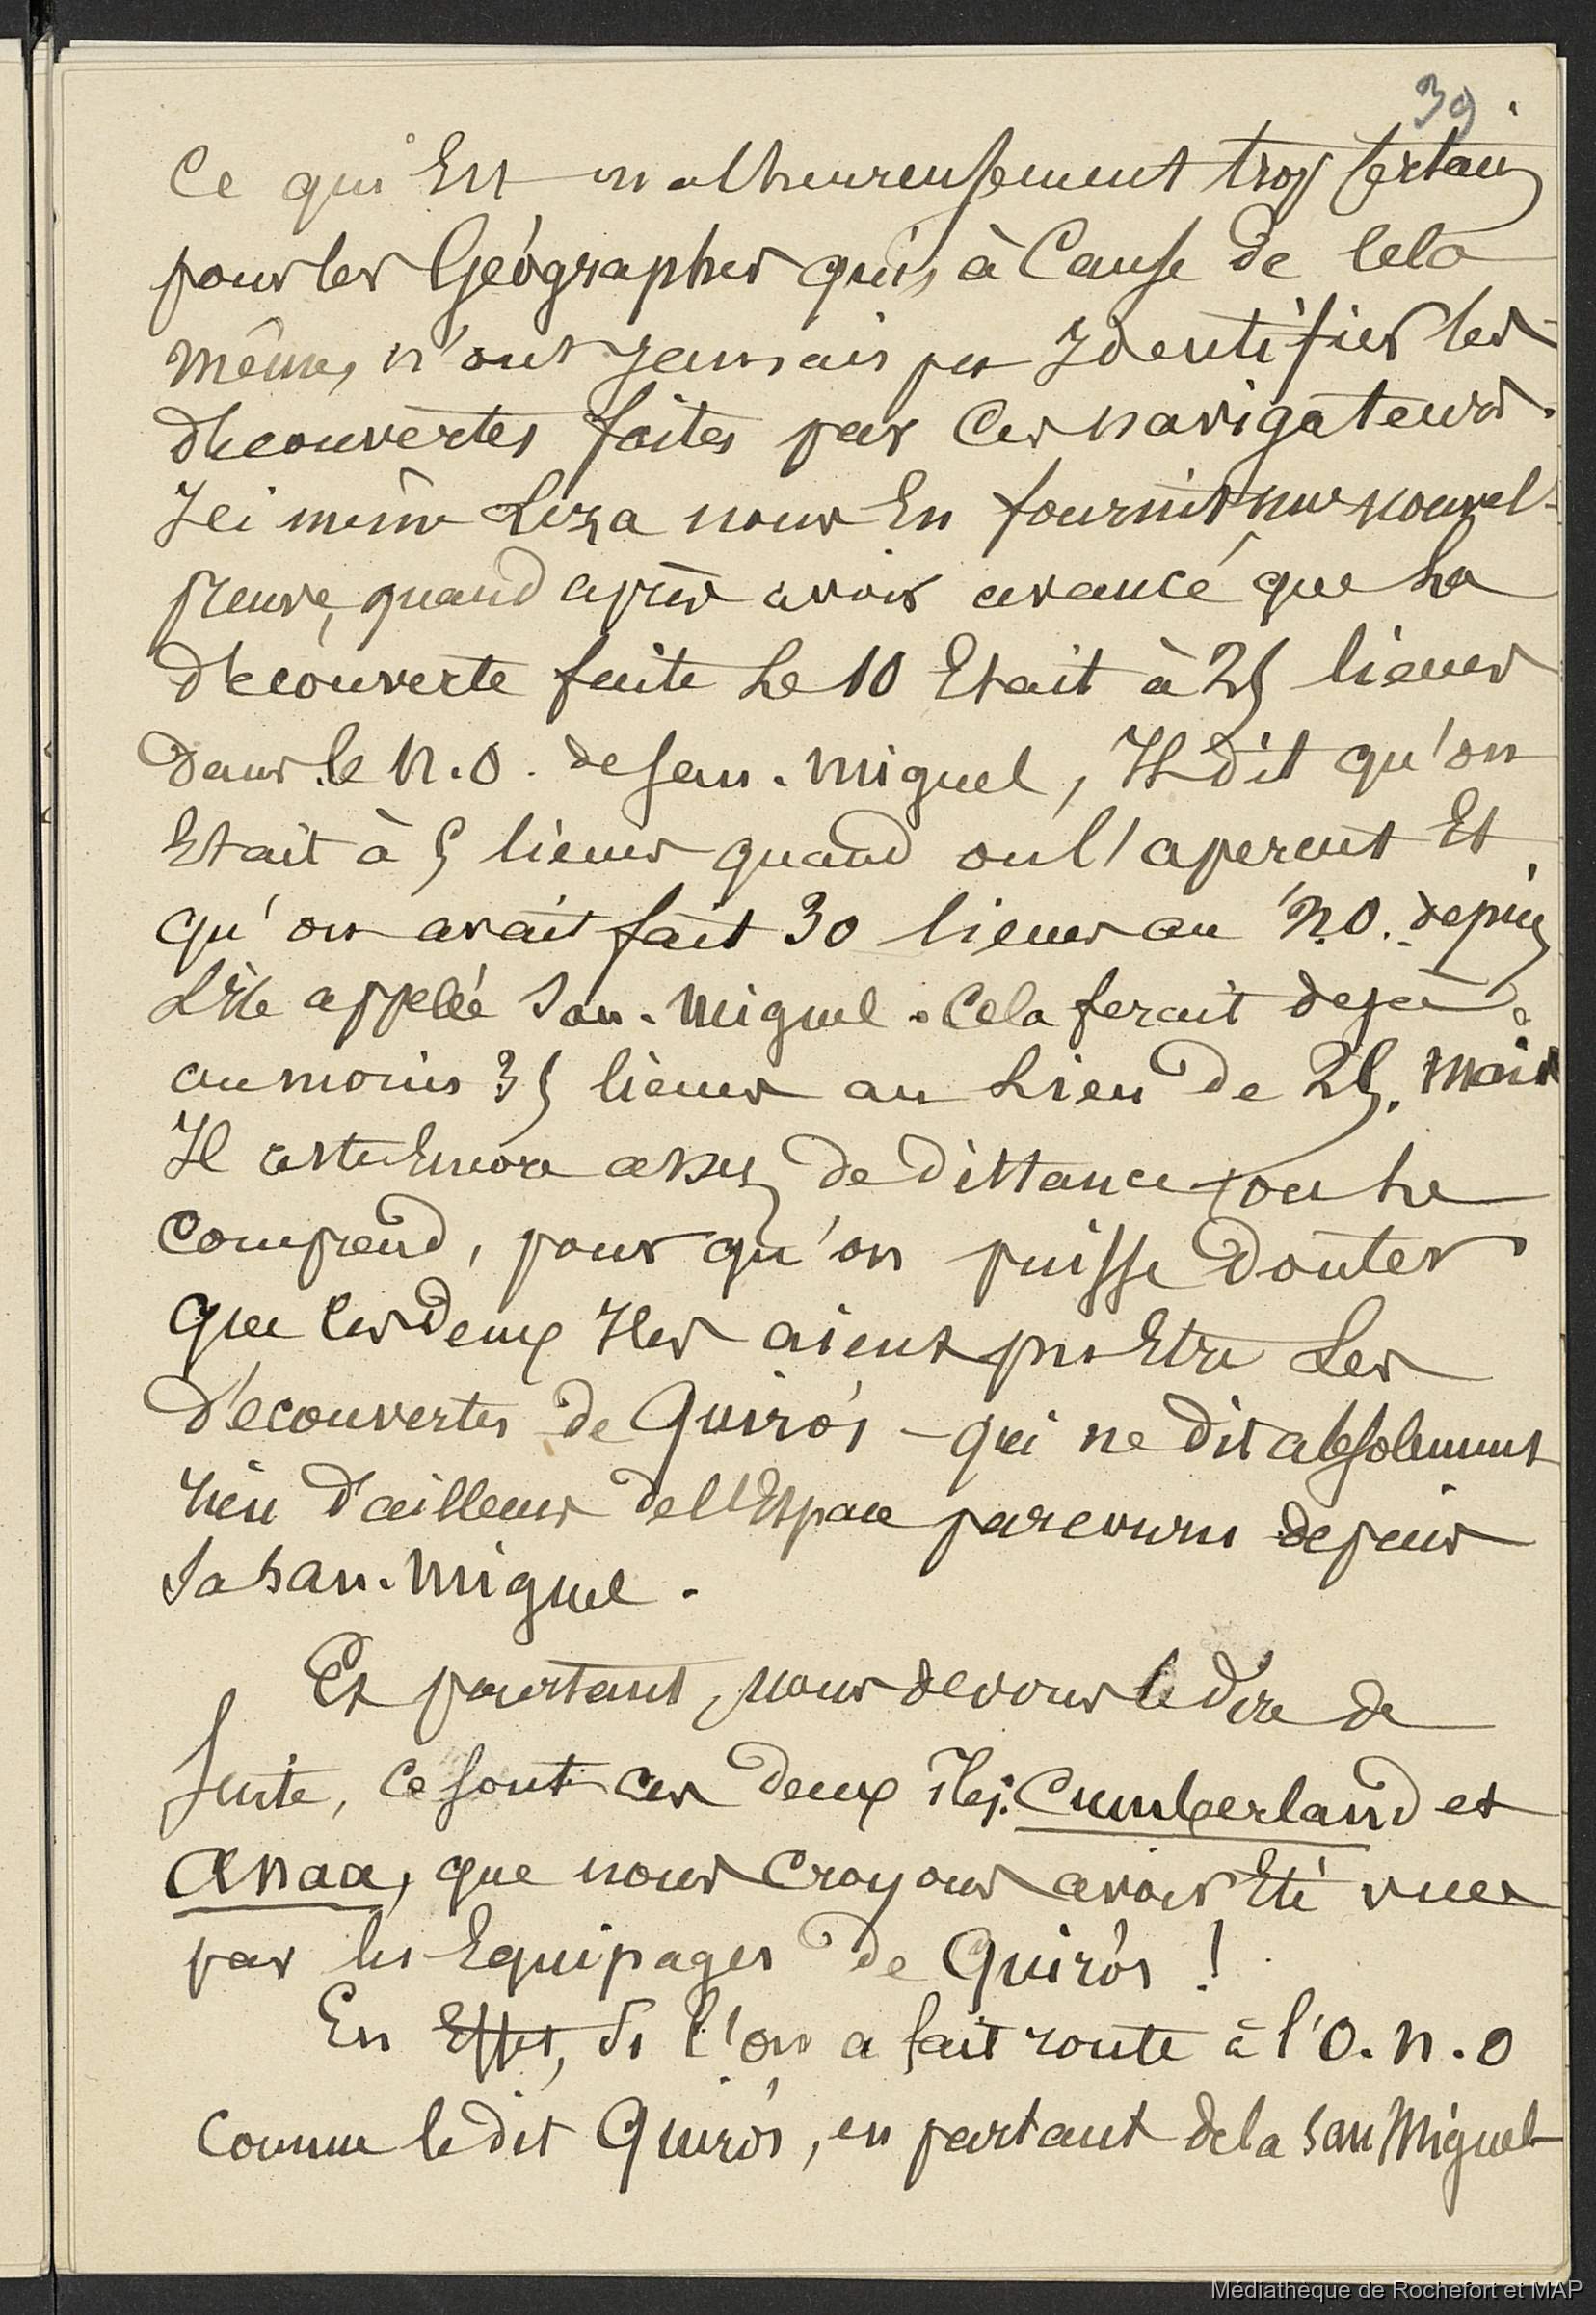 39
Ce qui Est malheureusement trop certain
pour les Géographes qui, à Cause de cela
même, n'ont jamais pu Identifier les
découvertes faites par Ces navigateurs.
Ici même Leza nous En fournit une nouvel-
preuve, quand après avoir avancé que La
découverte faite Le 10 Etait à 25 lieues
dans le N.O. de San. Miguel, Il dit qu'on
Etait à 5 lieues quand on l'aperçut Et
qu'on avait fait 30 lieues au N.O. depuis
L'île appelée San. Miguel. Cela ferait déjà
au moins 35 lieues au Lieu de 25. Mais
Il reste Encore assez de distance, on Le
comprend, pour qu'on puisse Douter
que les deux Iles aient pu Etre Les
découvertes de Quirós - qui ne dit absolument
rien d'ailleurs de l'Espace parcouru depuis
Sa San. Miguel.
Et pourtant, nous devons le dire de
Suite, ce sont ces deux îles: Cumberland et
Anaa, que nous Croyons avoir Eté vues
par les Equipages de Quirós !
En Effet, Si l'on a fait route à l'O.N.O
comme le dit Quirós, en partant de la San Miguel
Médiathèque de Rochefort et MAP